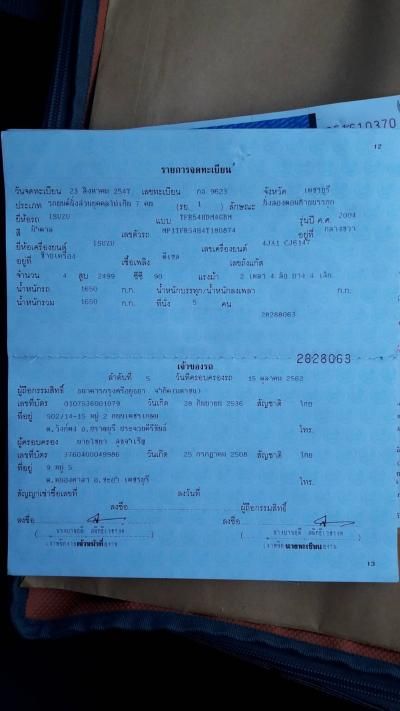 12
รายการจดทะเบียน
วันจดทะเบียน 23 สิงหาคม 2547 เลขทะเบียน กง 9623 จังหวัด เพชรบุรี
ประเภท รถยนต์นั่งส่วนบุคคลไม่เกิน 7 คน (รย. 1 ) ลักษณะ นั่งสองตอนท้ายบรรทุก
ยี่ห้อรถ ISUZU แบบ TFR54HDM4GBM รุ่นปี ค.ศ. 2004
สี น้ำตาล เลขตัวรถ MP1TFR54H4T180874 อยู่ที่ กลางขวา
ยี่ห้อเครื่องยนต์ ISUZU เลขเครื่องยนต์ 4JA1 CJ6147
อยู่ที่ ซ้ายเครื่อง เชื้อเพลิง ดีเซล เลขถังแก๊ส
จำนวน 4 สูบ 2499 ซีซี 90 แรงม้า 2 เพลา 4 ล้อ ยาง 4 เส้น
น้ำหนักรถ 1650 ก.ก. น้ำหนักบรรทุก/น้ำหนักลงเพลา ก.ก.
น้ำหนักรวม 1650 ก.ก. ที่นั่ง 5 คน
28288063
2828063
เจ้าของรถ
ลำดับที่ 5 วันที่ครอบครองรถ 15 ตุลาคม 2562
ผู้ถือกรรมสิทธิ์ ธนาคารกรุงศรีอยุธยา จำกัด(มหาชน)
เลขที่บัตร 0107536001079 วันเกิด 28 กันยายน 2536 สัญชาติ ไทย
ที่อยู่ 902/14-15 หมู่ 2 ถนนเพชรเกษม
ต.วังก์พง อ.ปราณบุรี ประจวบคีรีขันธ์ โทร.
ผู้ครอบครอง นายไชยา
เลขที่บัตร 3760400049986 วันเกิด 25 กรกฎาคม 2508 สัญชาติ ไทย
ที่อยู่ 9 หมู่ 5
ต.หนองศาลา อ.ชะอำ เพชรบุรี โทร.
สัญญาเช่าซื้อเลขที่ ลงวันที่
ลงชื่อ ผู้ถือกรรมสิทธิ์
ลงชื่อ ลงชื่อ
เจ้าหน้าที่ นายทะเบียน
13